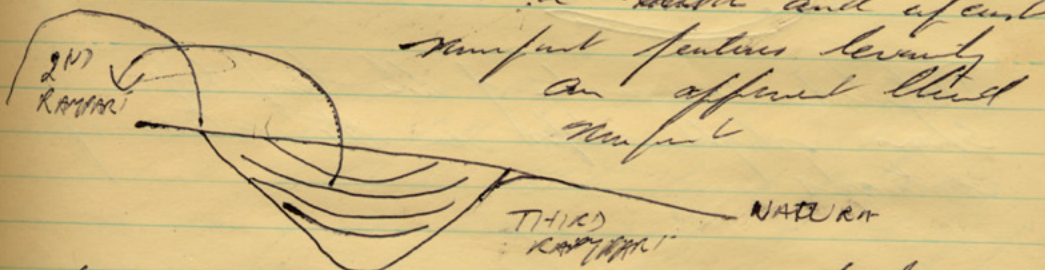 and
rampart features leaving
an apparent third
rampart
2ND
RAMPART
THIRD
RAMPART
NATURA